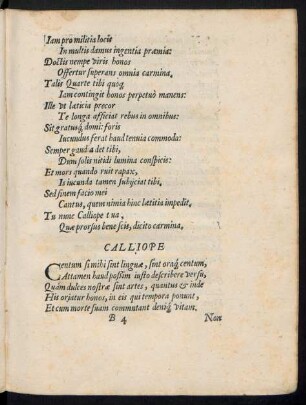 Iam pro militia locis
In multis damus ingentia præmia:
Doctis nempe viris honos
Offertur superans omnia carmina.
Talis Quarte tibi quoq;
Iam contingit honos perpetuò manens:
Ille vt læticia precor
Te longa afficiat rebus in omnibus:
Sit gratusq; domi: foris
Iucundus ferat haud tenuia commoda:
Semper gaudia det tibi,
Dum solis nitidi lumina conspicis:
Et mors quando ruit rapax,
Is iucunda tamen subijciat tibi,
Sed finem facio mei
Cantus, quem nimia hinc lætitia impedit,
Tu nunc Calliope tua,
Quæ prorsus bene scis, dicito carmina.
CALLIOPE
Centum si mihi sint linguæ, sint oraq; centum,
Attamen haud possim iusto describere versu,
Quàm dulces nostræ sint artes, quantus & inde
His oriatur honos, in eis qui tempora ponunt,
Et cum morte suam commutant deniq; vitam.
B 4
Non